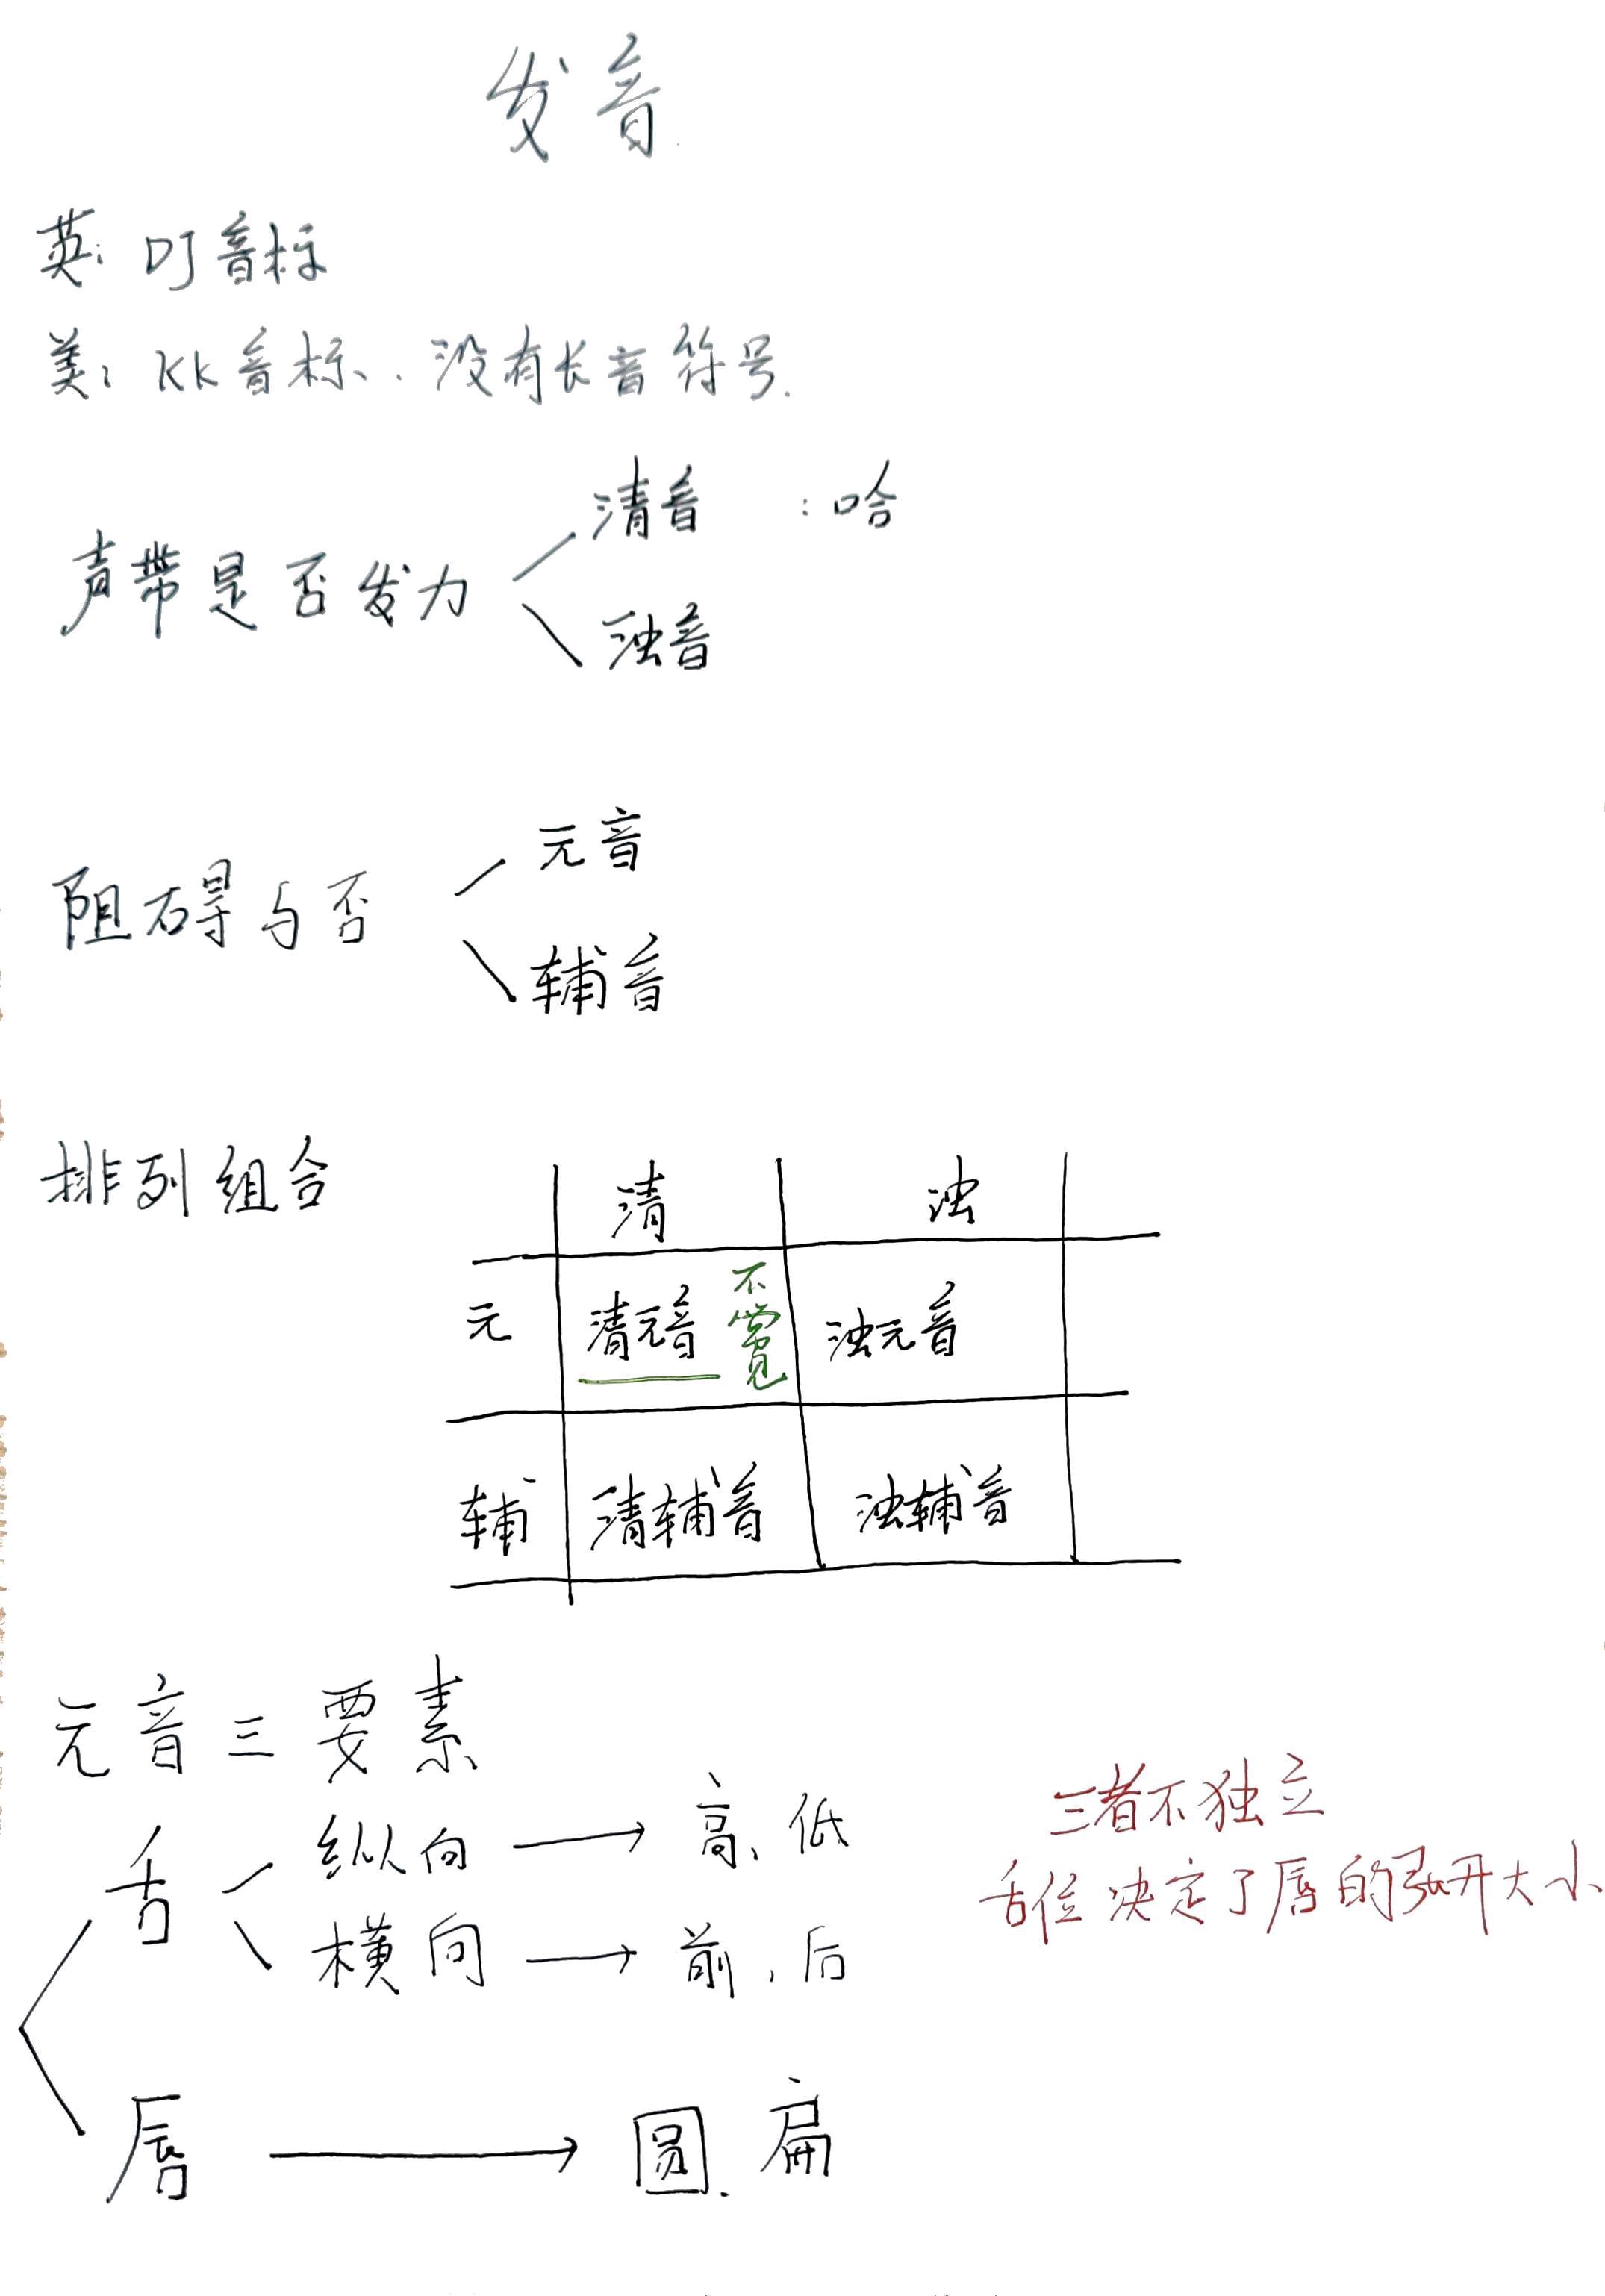 发音
英: DJ音标
美: KK音标. 没有长音符号.
清音 : 哈
声带是否发力
浊音
元音
阻碍与否
辅音
排列组合
清 浊
元 清元音 不常见 浊元音
辅 清辅音 浊辅音
元音三要素
舌 纵向 → 高、低
横向 → 前,后
三者不独立
舌位决定了唇的张开大小
唇 → 圆. 扁